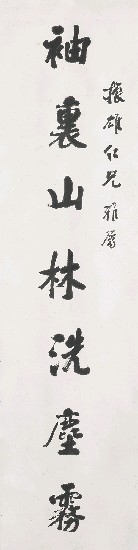 振雄仁兄雅属
袖裏山林洗塵霧